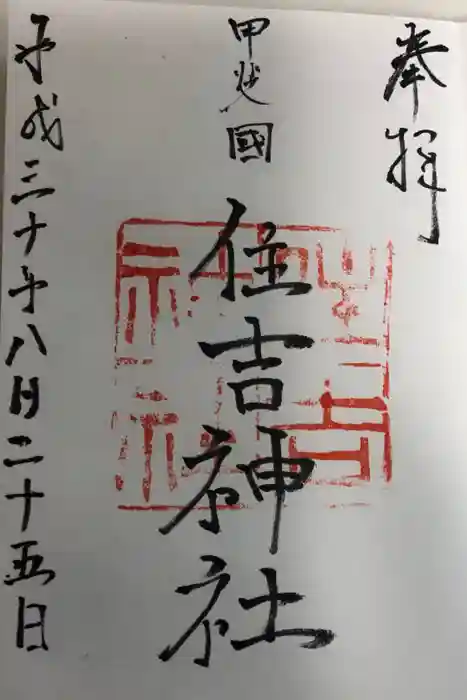 奉拝
甲斐國
住吉神社
平成三十年八月二十五日